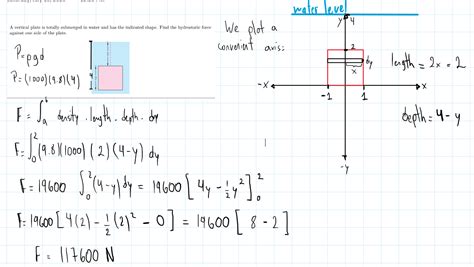 water level
A vertical plate is totally submerged in water and has the indicated shape. Find the hydrostatic force
against one side of the plate.
P=ρgd
P=(1000)(9.8)(4)
4
We plot a
convenient axis:
y
4
2
dy
x
-x
x
-1
1
-y
length = 2x = 2
depth = 4-y
F = ∫ₐᵇ density · length · depth · dy
F = ∫₀² (9.8)(1000) (2) (4-y) dy
F = 19600 ∫₀² (4-y) dy = 19600 [4y - ½y²]₀²
F = 19600 [4(2) - ½(2)² - 0] = 19600 [8 - 2]
F = 117600 N